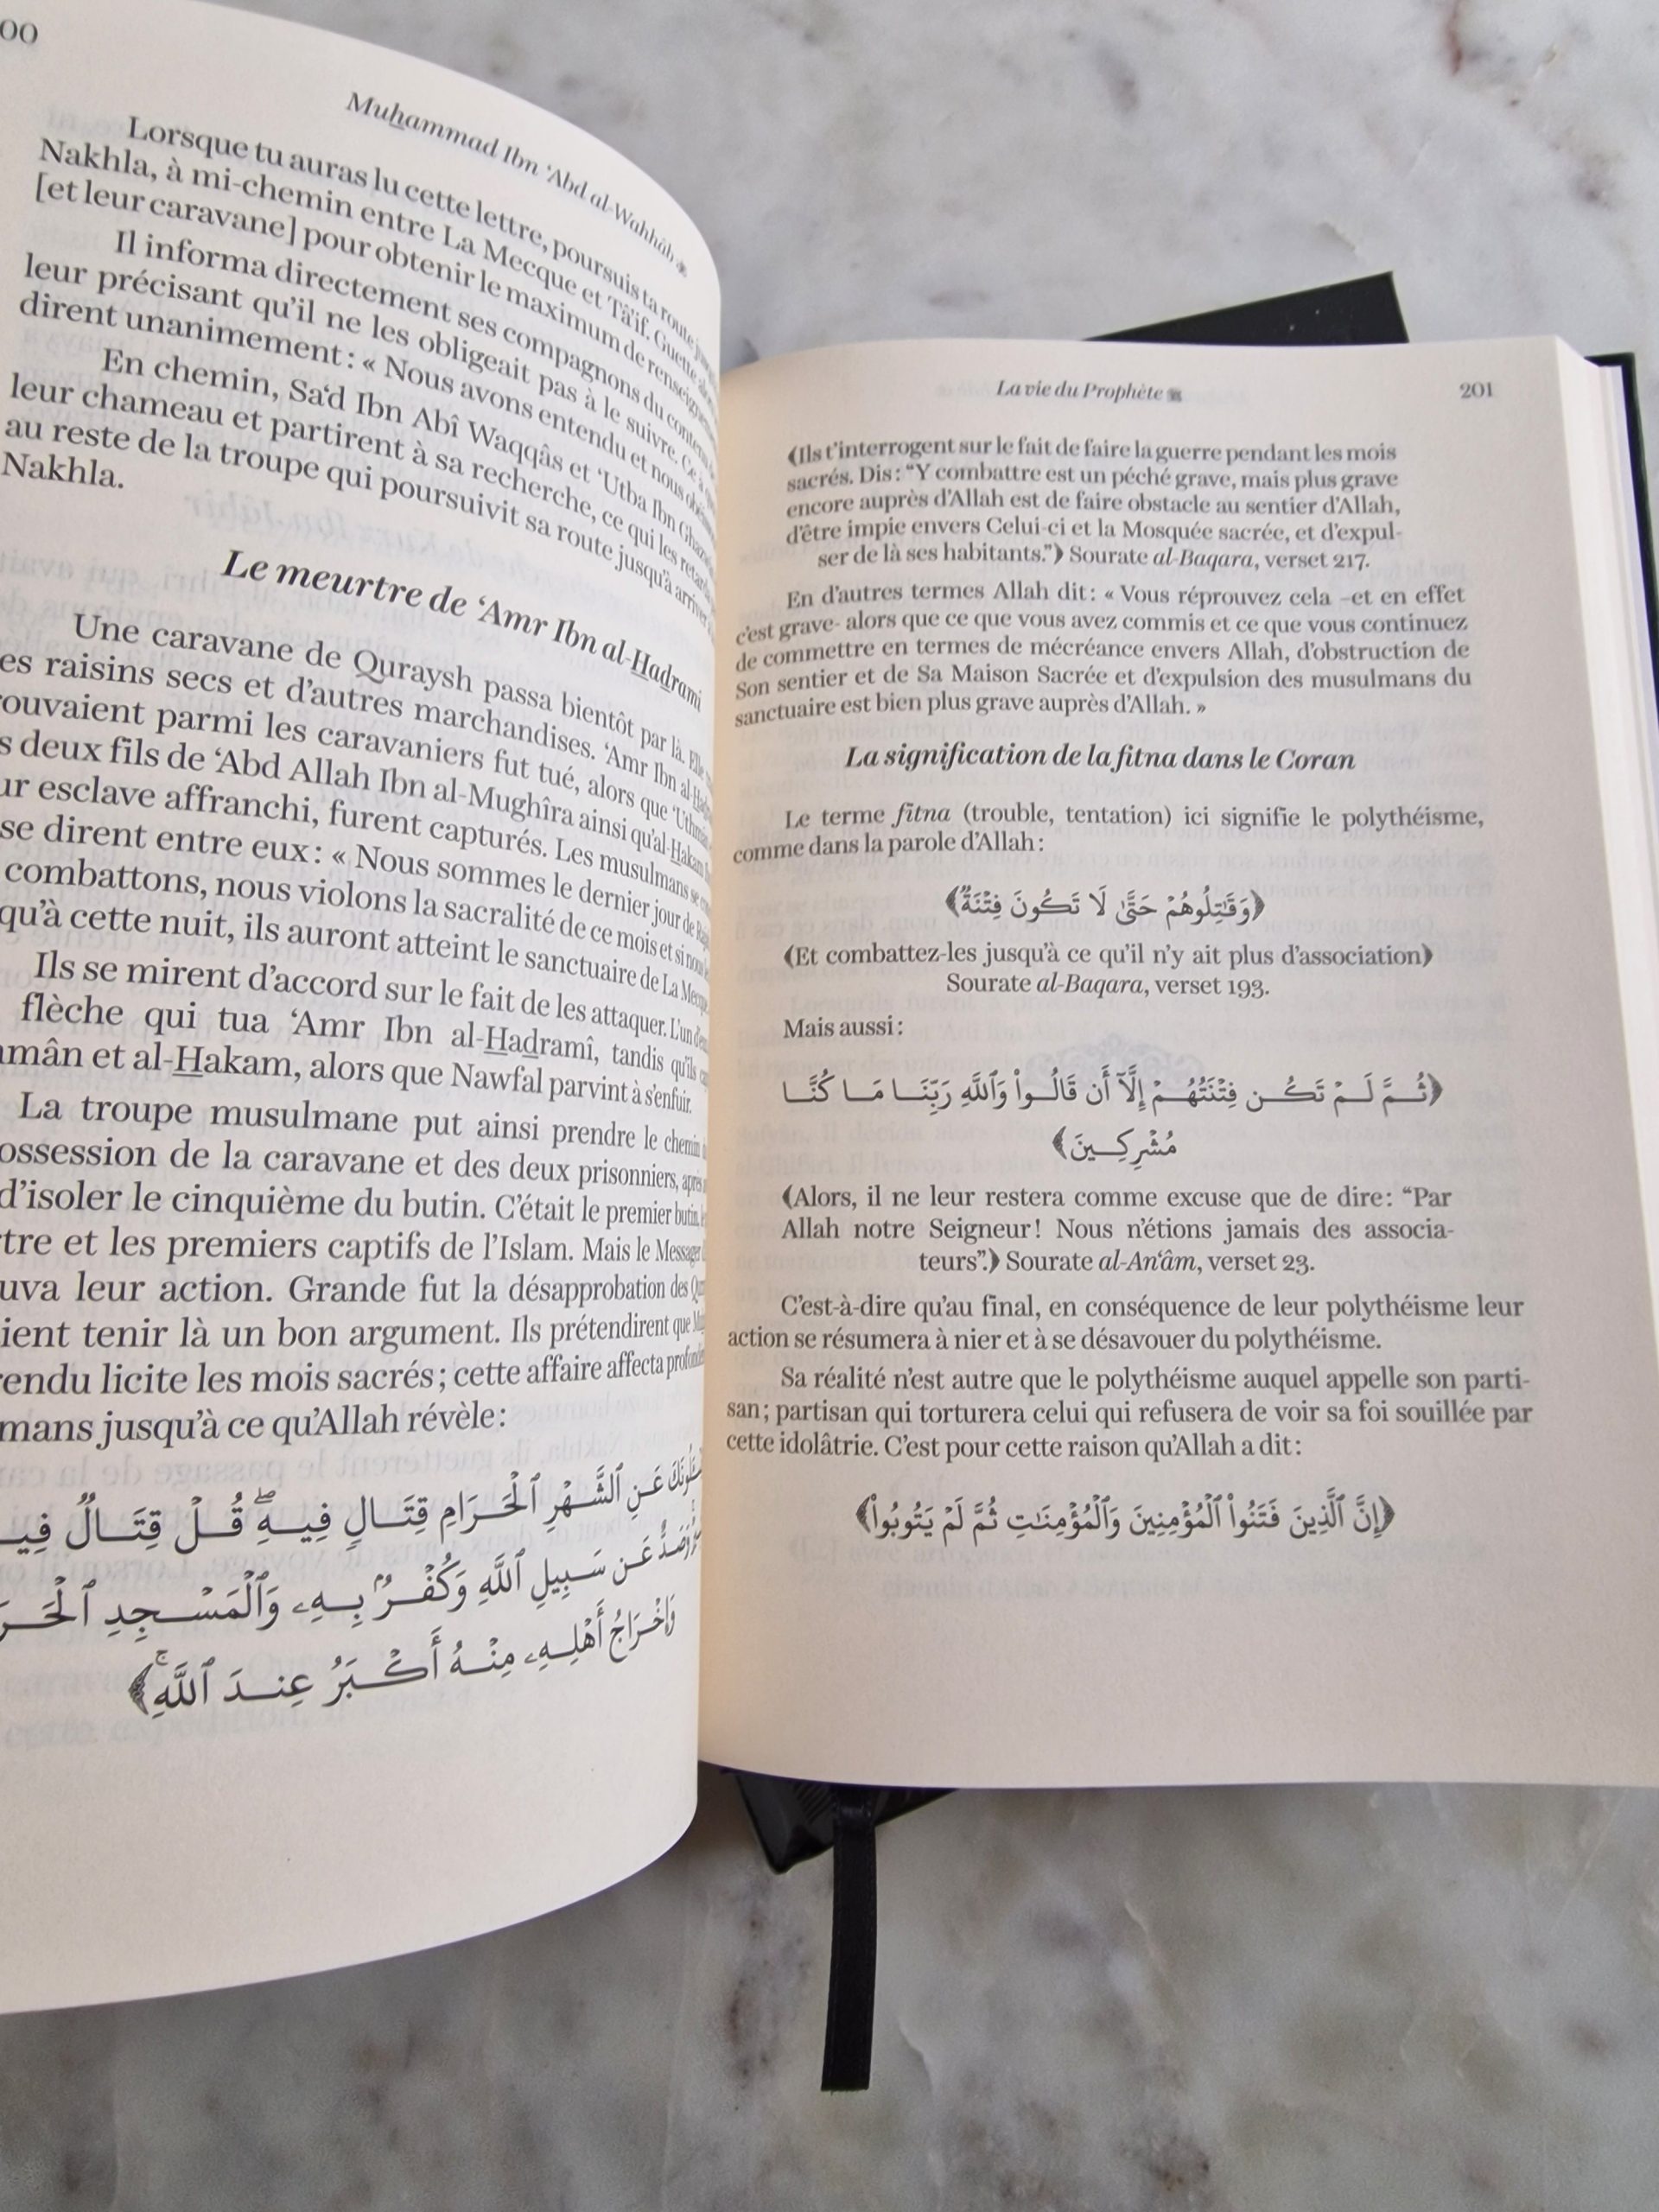 00
Muhammad Ibn ‘Abd al-Wahhâb
Lorsque tu auras lu cette lettre, poursuis ta route
Nakhla, à mi-chemin entre La Mecque et Tâ’if. Guette
[et leur caravane] pour obtenir le maximum de
Il informa directement ses compagnons du
leur précisant qu’il ne les obligeait pas à le suivre. Ce à
dirent unanimement : « Nous avons entendu et nous
En chemin, Sa‘d Ibn Abî Waqqâs et ‘Utba Ibn
leur chameau et partirent à sa recherche, ce qui les
au reste de la troupe qui poursuivit sa route jusqu’à
Nakhla.
Le meurtre de ‘Amr Ibn al-Hadrami
Une caravane de Quraysh passa bientôt par là. Elle
es raisins secs et d’autres marchandises. ‘Amr Ibn
rouvaient parmi les caravaniers fut tué, alors que
s deux fils de ‘Abd Allah Ibn al-Mughîra ainsi qu’al-Hakam
ur esclave affranchi, furent capturés. Les musulmans se
se dirent entre eux : « Nous sommes le dernier jour de
combattons, nous violons la sacralité de ce mois et si nous
qu’à cette nuit, ils auront atteint le sanctuaire de La
Ils se mirent d’accord sur le fait de les attaquer. L’un
flèche qui tua ‘Amr Ibn al-Hadramî, tandis qu’ils
mân et al-Hakam, alors que Nawfal parvint à s’enfuir.
La troupe musulmane put ainsi prendre le chemin
ossession de la caravane et des deux prisonniers, après
d’isoler le cinquième du butin. C’était le premier butin,
tre et les premiers captifs de l’Islam. Mais le Messager
uva leur action. Grande fut la désapprobation des
ient tenir là un bon argument. Ils prétendirent que
rendu licite les mois sacrés ; cette affaire affecta
mans jusqu’à ce qu’Allah révèle :
عَنِ ٱلشَّهْرِ ٱلْحَرَامِ قِتَالٍ فِيهِۖ قُلْ قِتَالٌ
عَن سَبِيلِ ٱللَّهِ وَكُفْرٌۢ بِهِۦ وَٱلْمَسْجِدِ
وَإِخْرَاجُ أَهْلِهِۦ مِنْهُ أَكْبَرُ عِندَ ٱللَّهِۚ﴾
La vie du Prophète ﷺ 201
﴾Ils t’interrogent sur le fait de faire la guerre pendant les mois
sacrés. Dis : “Y combattre est un péché grave, mais plus grave
encore auprès d’Allah est de faire obstacle au sentier d’Allah,
d’être impie envers Celui-ci et la Mosquée sacrée, et d’expul-
ser de là ses habitants.”﴿ Sourate al-Baqara, verset 217.
En d’autres termes Allah dit : « Vous réprouvez cela –et en effet
c’est grave- alors que ce que vous avez commis et ce que vous continuez
de commettre en termes de mécréance envers Allah, d’obstruction de
Son sentier et de Sa Maison Sacrée et d’expulsion des musulmans du
sanctuaire est bien plus grave auprès d’Allah. »
La signification de la fitna dans le Coran
Le terme fitna (trouble, tentation) ici signifie le polythéisme,
comme dans la parole d’Allah :
﴿وَقَٰتِلُوهُمْ حَتَّىٰ لَا تَكُونَ فِتْنَةٌ﴾
﴾Et combattez-les jusqu’à ce qu’il n’y ait plus d’association﴿
Sourate al-Baqara, verset 193.
Mais aussi :
﴿ثُمَّ لَمْ تَكُن فِتْنَتُهُمْ إِلَّآ أَن قَالُوا۟ وَٱللَّهِ رَبِّنَا مَا كُنَّا
مُشْرِكِينَ﴾
﴾Alors, il ne leur restera comme excuse que de dire : “Par
Allah notre Seigneur ! Nous n’étions jamais des associa-
teurs”.﴿ Sourate al-An‘âm, verset 23.
C’est-à-dire qu’au final, en conséquence de leur polythéisme leur
action se résumera à nier et à se désavouer du polythéisme.
Sa réalité n’est autre que le polythéisme auquel appelle son parti-
san ; partisan qui torturera celui qui refusera de voir sa foi souillée par
cette idolâtrie. C’est pour cette raison qu’Allah a dit :
﴿إِنَّ ٱلَّذِينَ فَتَنُوا۟ ٱلْمُؤْمِنِينَ وَٱلْمُؤْمِنَٰتِ ثُمَّ لَمْ يَتُوبُوا۟﴾